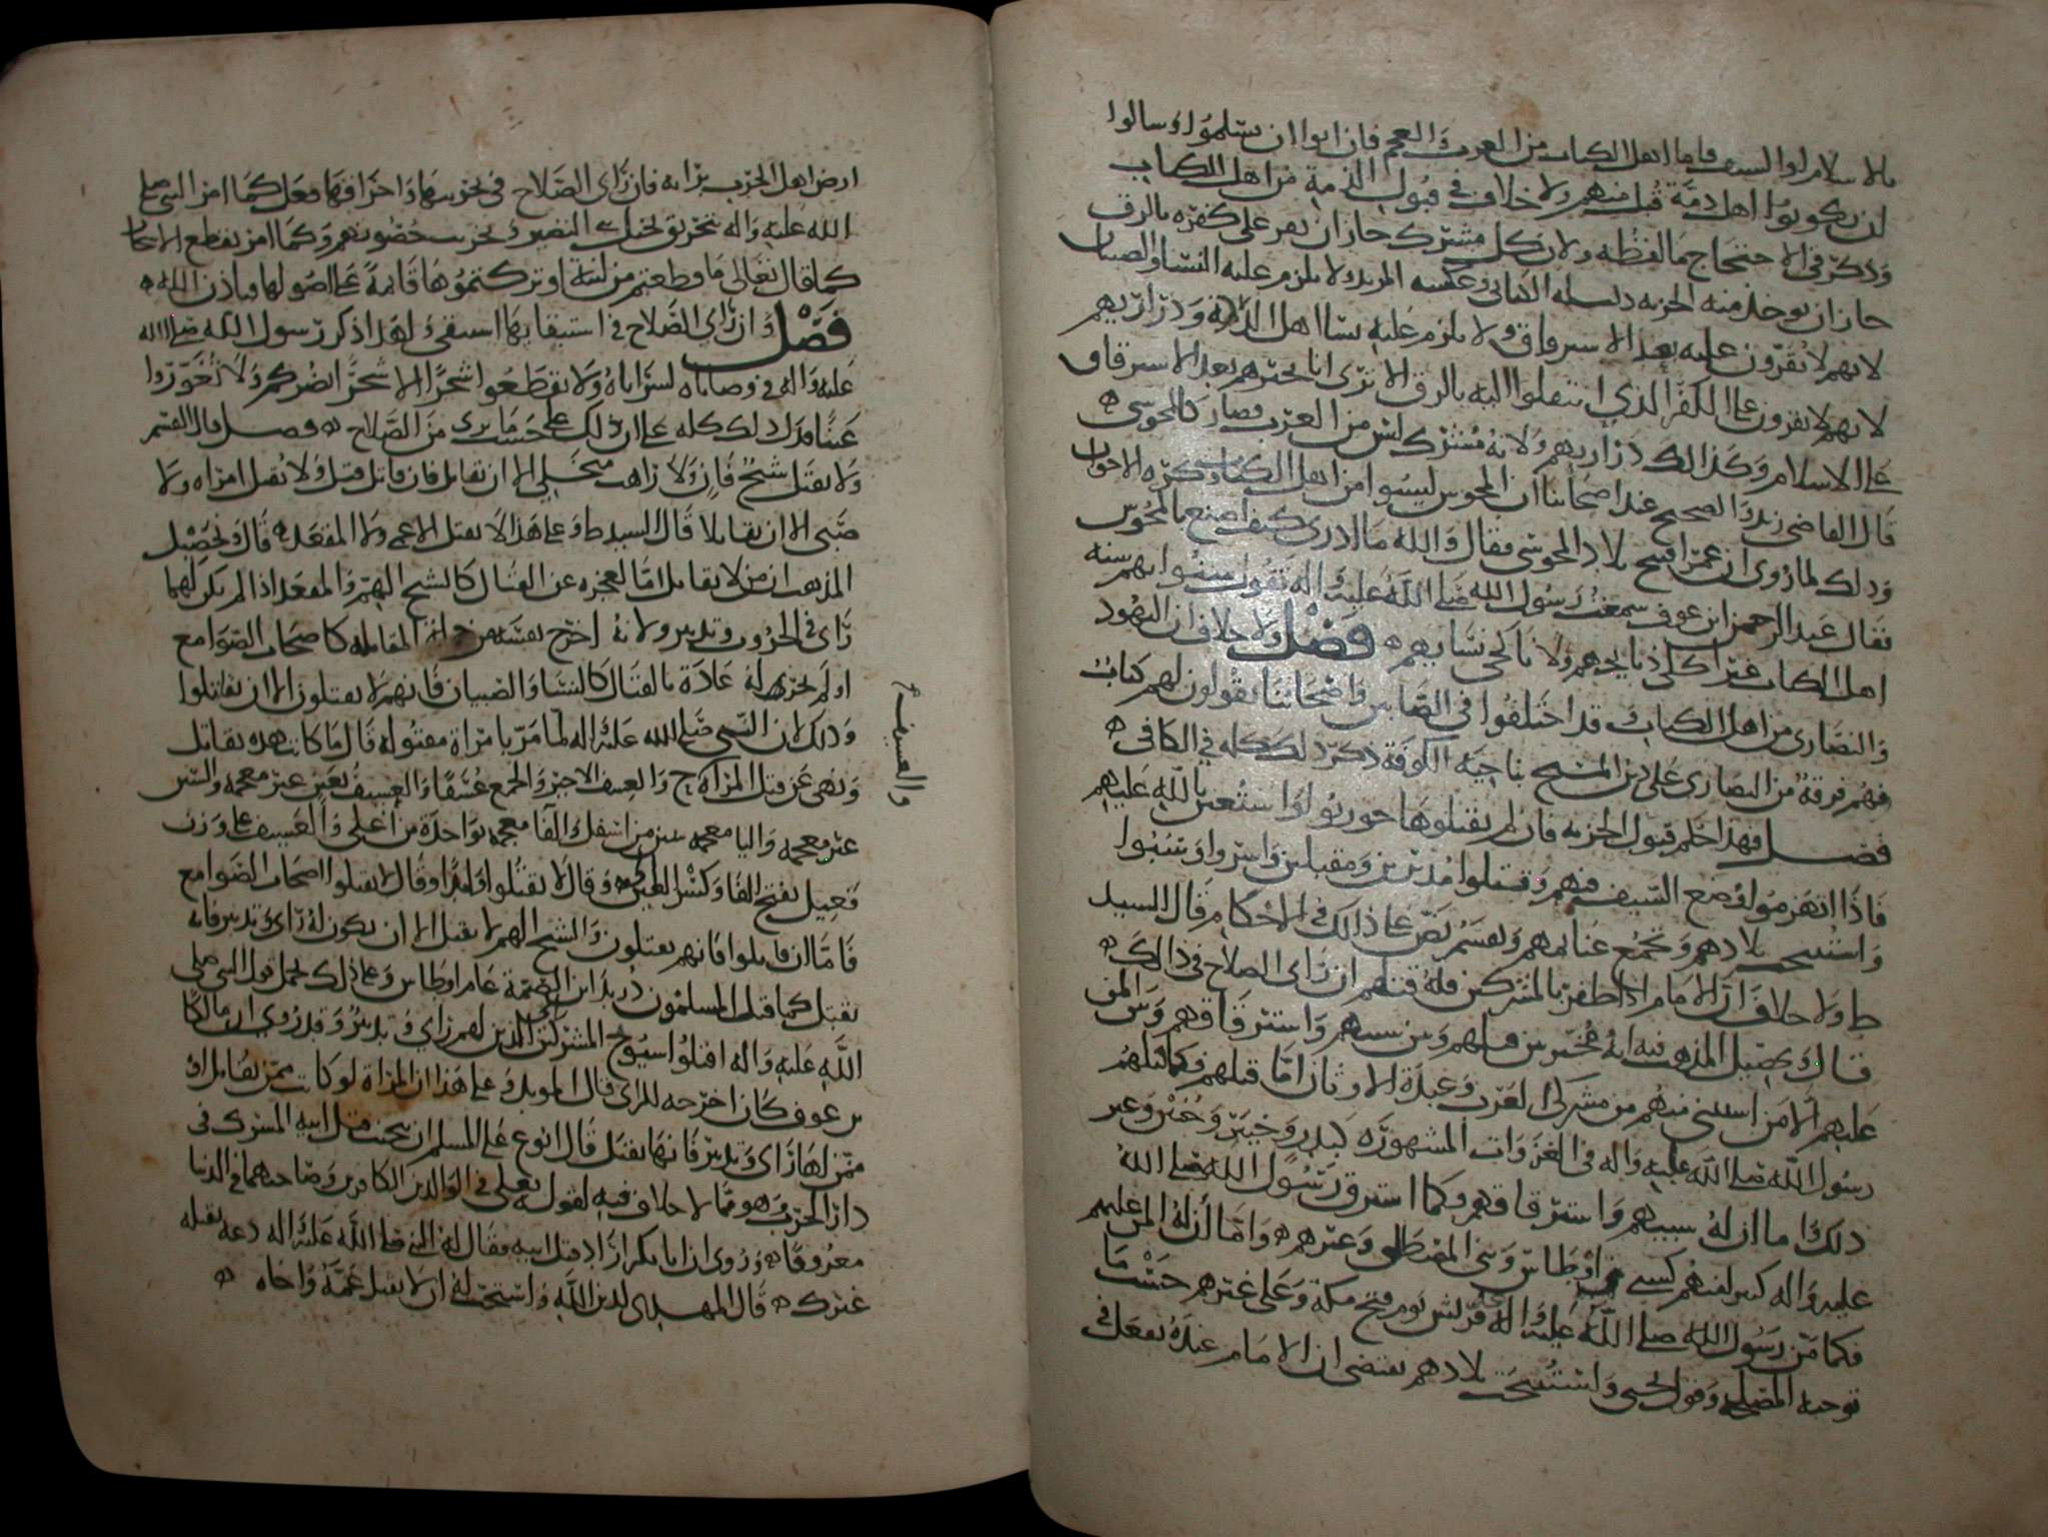 بالاسلام او السيف فاما اهل الكتاب من العرب والعجم فان ابوا ان يسلموا وسالوا
ان يكونوا اهل ذمة قبل منهم ولا خلاف في قبول الذمة من اهل الكتاب
وذكر في الاحتجاج ما لفظه ولان كل مشرك جاز ان يقر على كفره بالرق
جاز ان يوخذ منه الجزيه دليله الكتابي وعكسه المرتد ولا يلزم عليه النسا والصبيان
لانهم لا يقرون عليه بعد الاسترقاق ولا يلزم عليه نسا اهل الذمة وذراريهم
لانهم لا يقرون على الكفر الذي انتقلوا اليه بالرق الا ترى انا نجبرهم بعد الاسترقاق
على الاسلام وكذالك ذراريهم ولانه مشرك ليس من العرب فصار كالمجوسي
قال القاضي زيد والصحيح عند اصحابنا ان المجوس ليسوا من اهل الكتاب وكره الاخوان
وذلك لما روي ان عمر افتتح بلاد المجوس فقال والله ما ادري كيف اصنع بالمجوس
فقال عبد الرحمن ابن عوف سمعت رسول الله صلى الله عليه واله يقول سنوا بهم سنه
اهل الكتاب غير اكلي ذبايحهم ولا ناكحي نسايهم فصل ولا خلاف ان اليهود
والنصارى من اهل الكتاب وقد اختلفوا في الصابين واصحابنا يقولون لهم كتاب
فهم فرقة من النصارى على دين المسيح بناحية الكوفة ذكر ذلك كله في الكافي
فصل فهذا حكم قبول الجزيه فان لم يقبلوها حوربوا واستعين بالله عليهم
فاذا انهزموا وضع السيف فيهم وقتلوا مدبرين ومقبلين واسروا وسبوا
واستبيحت بلادهم وتجمع غنايمهم وتقسم نص على ذالك في الاحكام قال السيد
ط ولا خلاف ان الامام اذا ظفر بالمشركين فله قتلهم ان راى الصلاح في ذالك
قال وتحصيل المذهب فيه انه مخير بين قتلهم وبين سبيهم واسترقاقهم وبين المن
عليهم الا من استثني منهم من مشركي العرب وعبدة الاوثان اما قتلهم فكما قتلهم
رسول الله صلى الله عليه واله في الغزوات المشهوره كبدر وخيبر وحنين وغير
ذلك واما ان له سبيهم واسترقاقهم فكما استرق رسول الله صلى الله
عليه واله كسبي اوطاس وبني المصطلق وغيرهم واما ان له المن عليهم
فكما من رسول الله صلى الله عليه واله على قريش يوم فتح مكة وعلى غيرهم حسب ما
توجبه المصلحه وقول يحيى واستبيحت بلادهم يقتضي ان الامام عنده يفعل في
ارض اهل الحرب برايه فان راى الصلاح في تخريبها واحراقها فعل كما امر النبي صلى
الله عليه واله بتحريق نخيل بني النضير وتخريب حصونهم وكما امر بقطع
كما قال تعالى ما قطعتم من لينة او تركتموها قايمة على اصولها فباذن الله
فصل وان راى الصلاح في استبقايها استبقى ولهذا ذكر رسول الله صلى الله
عليه واله في وصاياه لسراياه ولا تقطعوا شجرا الا شجرا يضركم ولا تغوروا
عينا فدل ذلك كله على ان ذلك على حسب ما يرى من الصلاح فصل قال القسم
ولا يقتل شيخ فان ولا راهب متخلي الا ان يقاتل فان قاتل قتل ولا تقتل امراه ولا
صبي الا ان يقاتلا قال السيد ط وعلى هذا لا يقتل الاعمى ولا المقعد قال وتحصيل
المذهب ان من لا يقاتل اما لعجزه عن القتال كالشيخ الهم والمقعد اذا لم يكن لهما
راى في الحروب وتدبير ولانه اخرج نفسه من المقاتله كاصحاب الصوامع
او لم تجر له عادة بالقتال كالنسا والصبيان فانهم لا يقتلون الا ان يقاتلوا
وذلك لان النبي صلى الله عليه واله لما مر بامراة مقتوله قال ما كانت هذه تقاتل
ونهى عن قتل المراه ح والعسيف الاجير والجمع عسفا والعسيف بعين غير معجمه والسين
غير معجمه واليا معجمه بثنتين من اسفل والفا معجمه بواحدة من اعلى والعسيف على وزن
فعيل بفتح الفا وكسر العين وقال لا تقتلوا وليدا وقال لا تقتلوا اصحاب الصوامع
فاما ان قاتلوا فانهم يقتلون والشيخ الهم لا يقتل الا ان يكون له راى وتدبير فانه
يقتل كما قتل المسلمون دريد ابن الصمة عام اوطاس وعلى ذلك يحمل قول النبي صلى
الله عليه واله اقتلوا شيوخ المشركين الذين لهم راي وتدبير وقد روي ان مالك
بن عوف كان اخرجه للراى قال المويد وعلى هذا ان المراة لو كانت ممن يقاتل او
ممن لها راى وتدبير فانها تقتل قال ابو ع على المسلم ان يتجنب قتل ابيه المشرك في
دار الحرب وهو مما لا خلاف فيه لقوله تعالى في الوالدين الكافرين وصاحبهما في الدنيا
معروفا وروي ان ابا بكر اراد قتل ابيه فقال له النبي صلى الله عليه واله دعه يقتله
غيرك قال المهدي لدين الله واستحب له ان لا يقتل عمه واخاه
والعسيف